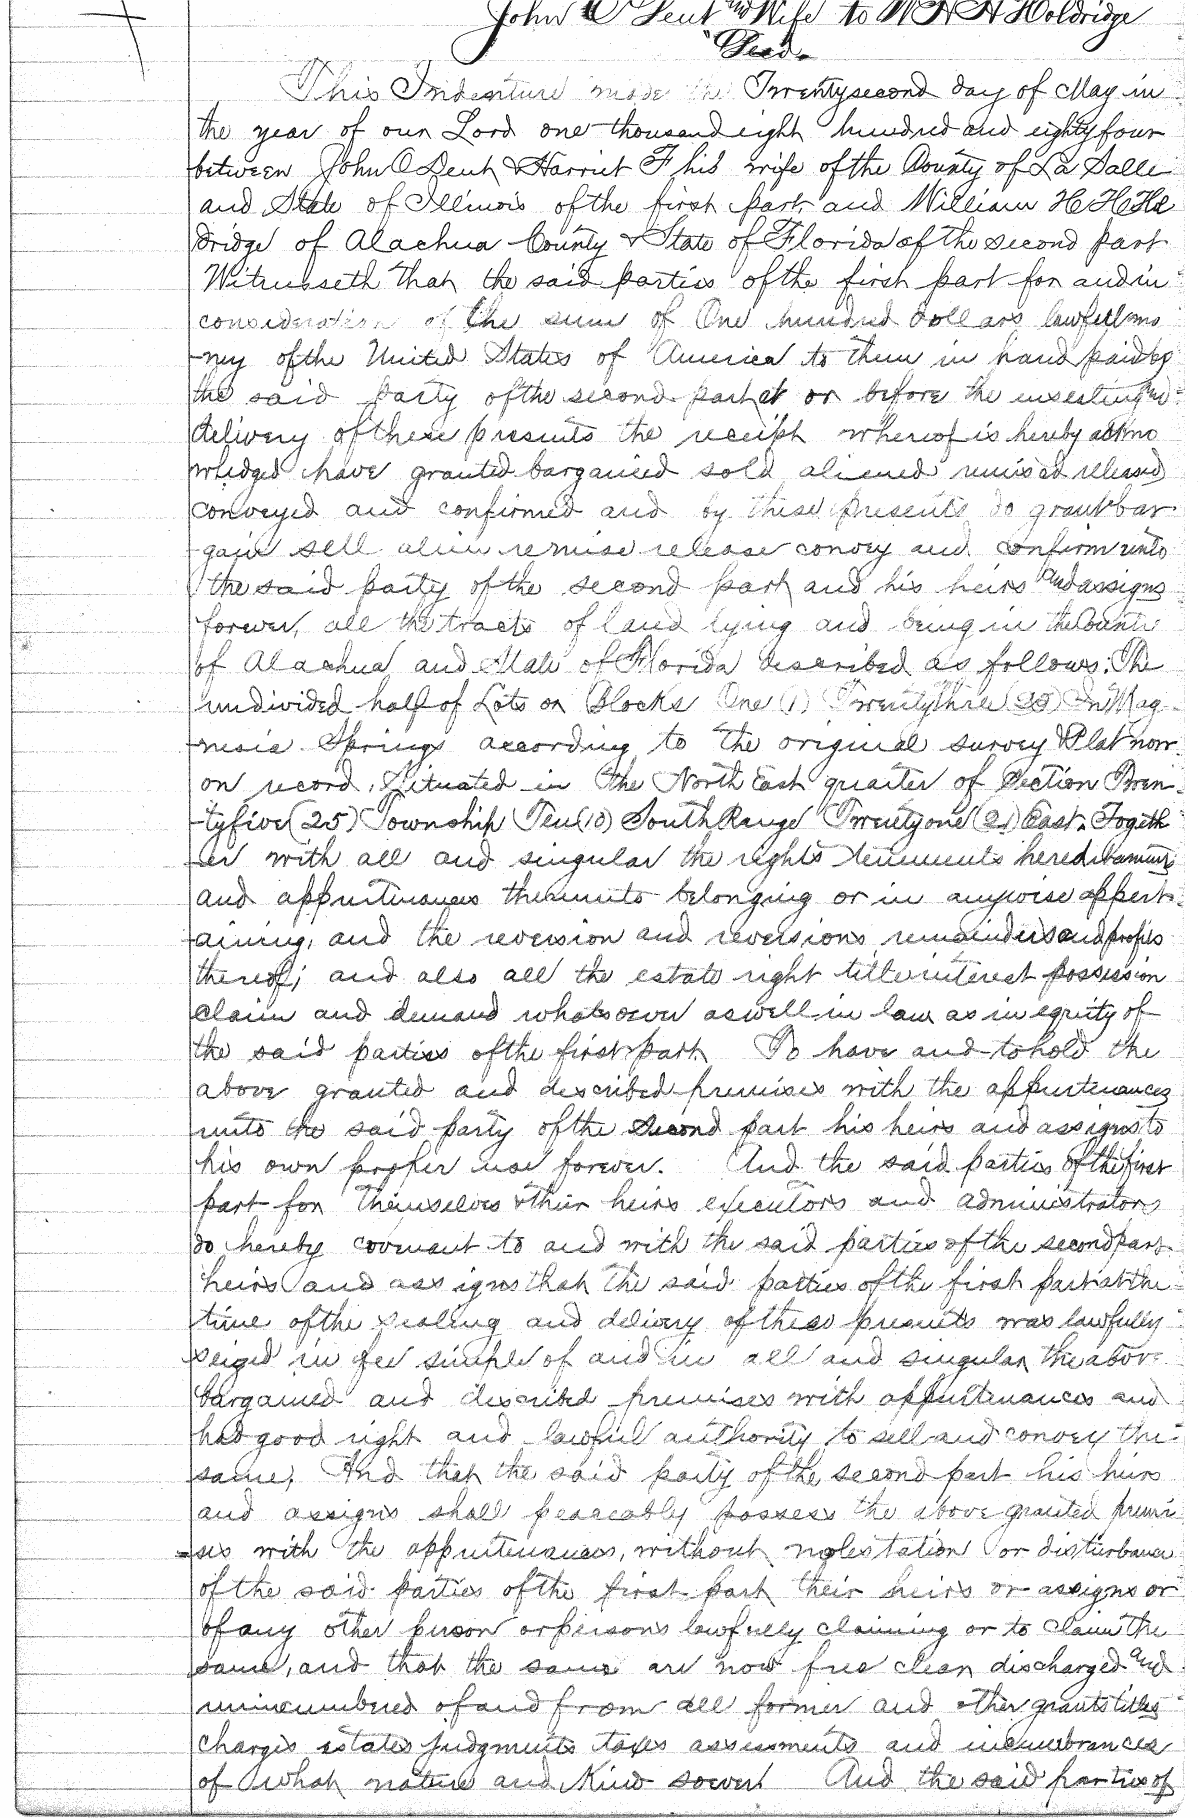 John O Dent and Wife to W H H Holdridge
"Deed"
This Indenture made the Twentysecond day of May in
the year of our Lord one thousand eight hundred and eightyfour
between John O Dent & Harriet F his wife of the County of La Salle
and State of Illinois of the first part and William H H Hol
dridge of Alachua County & State of Florida of the second part
Witnesseth that the said parties of the first part for and in
consideration of the sum of One hundred dollars lawful mo
ney of the United States of America to them in hand paid by
the said party of the second part at or before the ensealing and
delivery of these presents the receipt whereof is hereby ackno
wledged have granted bargained sold aliened remised released
conveyed and confirmed and by these presents do grant bar
gain sell alien remise release convey and confirm unto
the said party of the second part and his heirs and assigns
forever, all the tracts of land lying and being in the County
of Alachua and State of Florida described as follows: The
undivided half of Lots or Blocks One (1) Twentythree (23) In Mag
nesia Springs according to the original survey & Plat now
on record, situated in the North East quarter of Section Twen
tyfive (25) Township Ten (10) South Range Twentyone (21) East. Togeth
er with all and singular the rights tenements hereditaments
and appurtenances thereunto belonging or in anywise appert
aining, and the reversion and reversions remainders and profits
thereof; and also all the estate right title interest possession
claim and demand whatsoever as well in law as in equity of
the said parties of the first part To have and to hold the
above granted and described premises with the appurtenances
unto the said party of the second part his heirs and assigns to
his own proper use forever. And the said parties of the first
part for themselves & their heirs executors and administrators
do hereby covenant to and with the said parties of the second part
heirs and assigns that the said parties of the first part at the
time of the sealing and delivery of these presents was lawfully
seized in fee simple of and in all and singular the above
bargained and described premises with appurtenances and
had good right and lawful authority to sell and convey the
same, And that the said party of the second part his heirs
and assigns shall peaceably possess the above granted premi
ses with the appurtenances, without molestation or disturbance
of the said parties of the first part their heirs or assigns or
of any other person or persons lawfully claiming or to claim the
same, and that the same are now free clear discharged and
unincumbered of and from all former and other grants titles
charges estates judgments taxes assessments and incumbrances
of what nature and kind soever And the said parties of